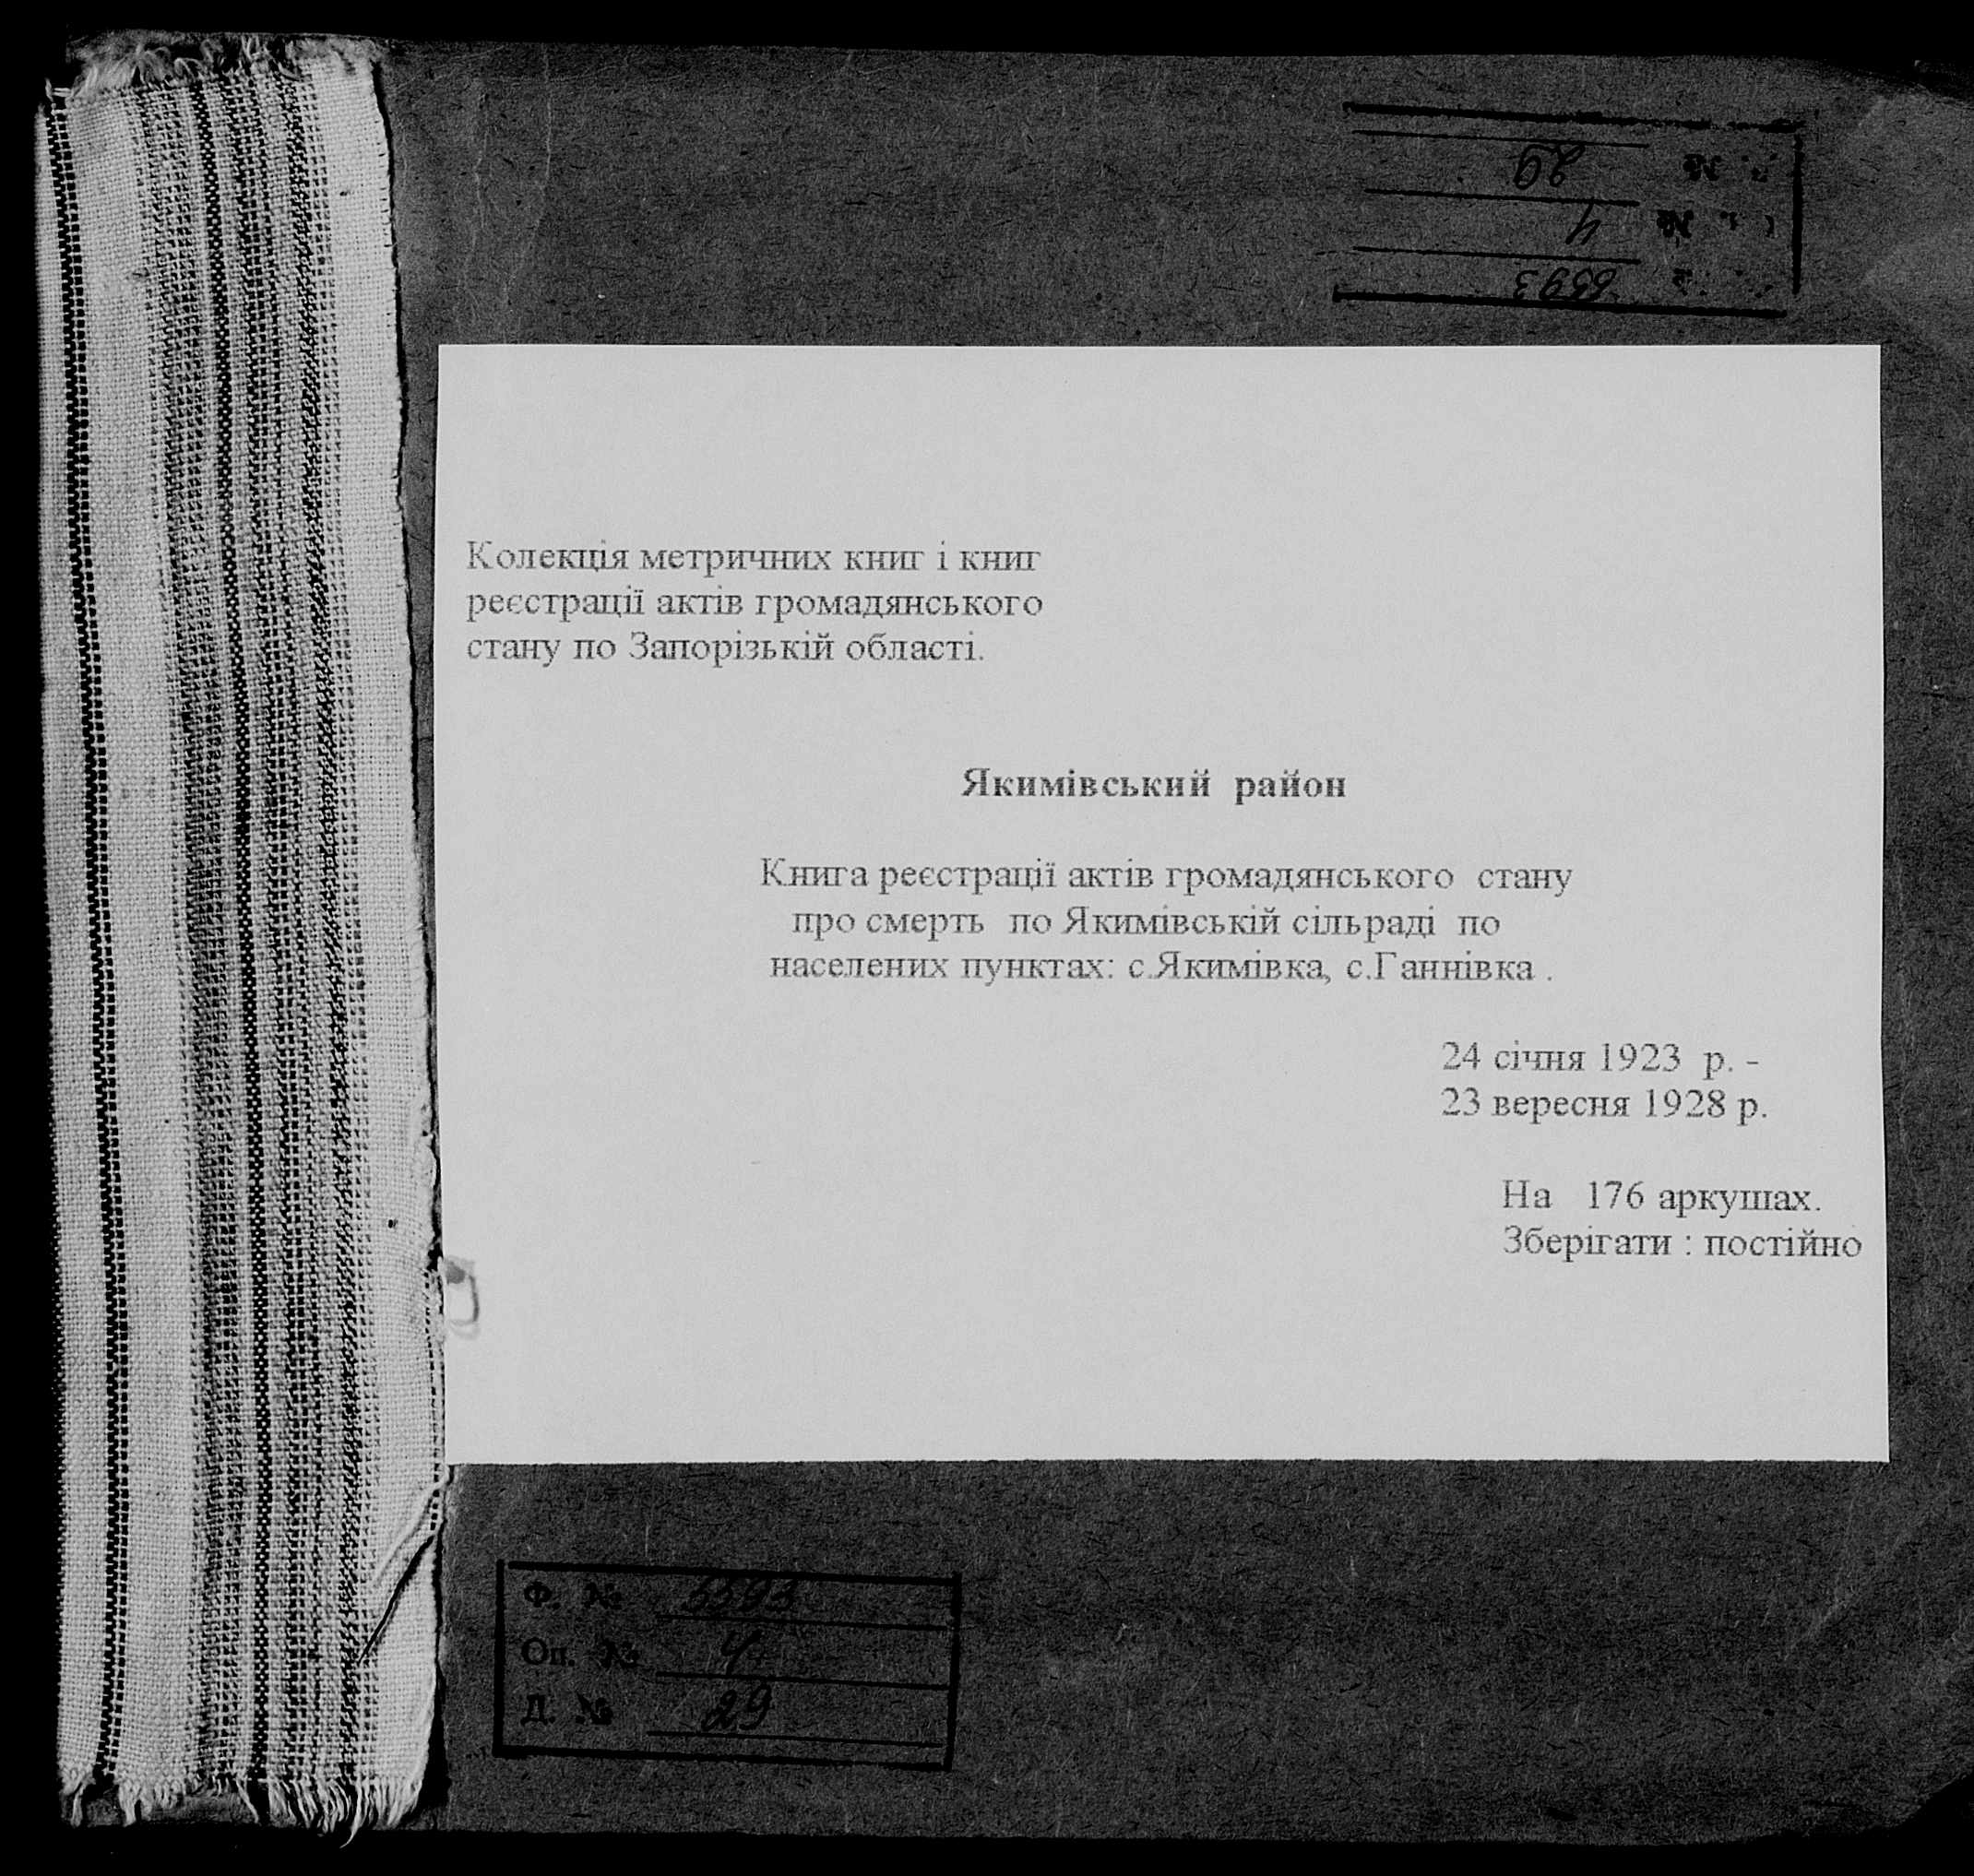 29
4
5593
Колекція метричних книг і книг
реєстрації актів громадянського
стану по Запорізькій області.
Якимівський район
Книга реєстрації актів громадянського стану
про смерть по Якимівській сільраді по
населених пунктах: с.Якимівка, с.Ганнівка .
24 січня 1923 р. -
23 вересня 1928 р.
На 176 аркушах.
Зберігати : постійно
Ф. № 5593
Оп. № 4
Д. № 29